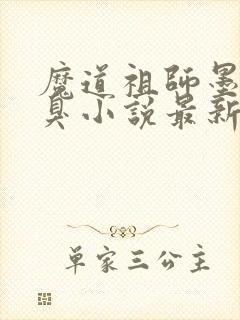 魔道祖師墨
臭小說最新
单家三公主